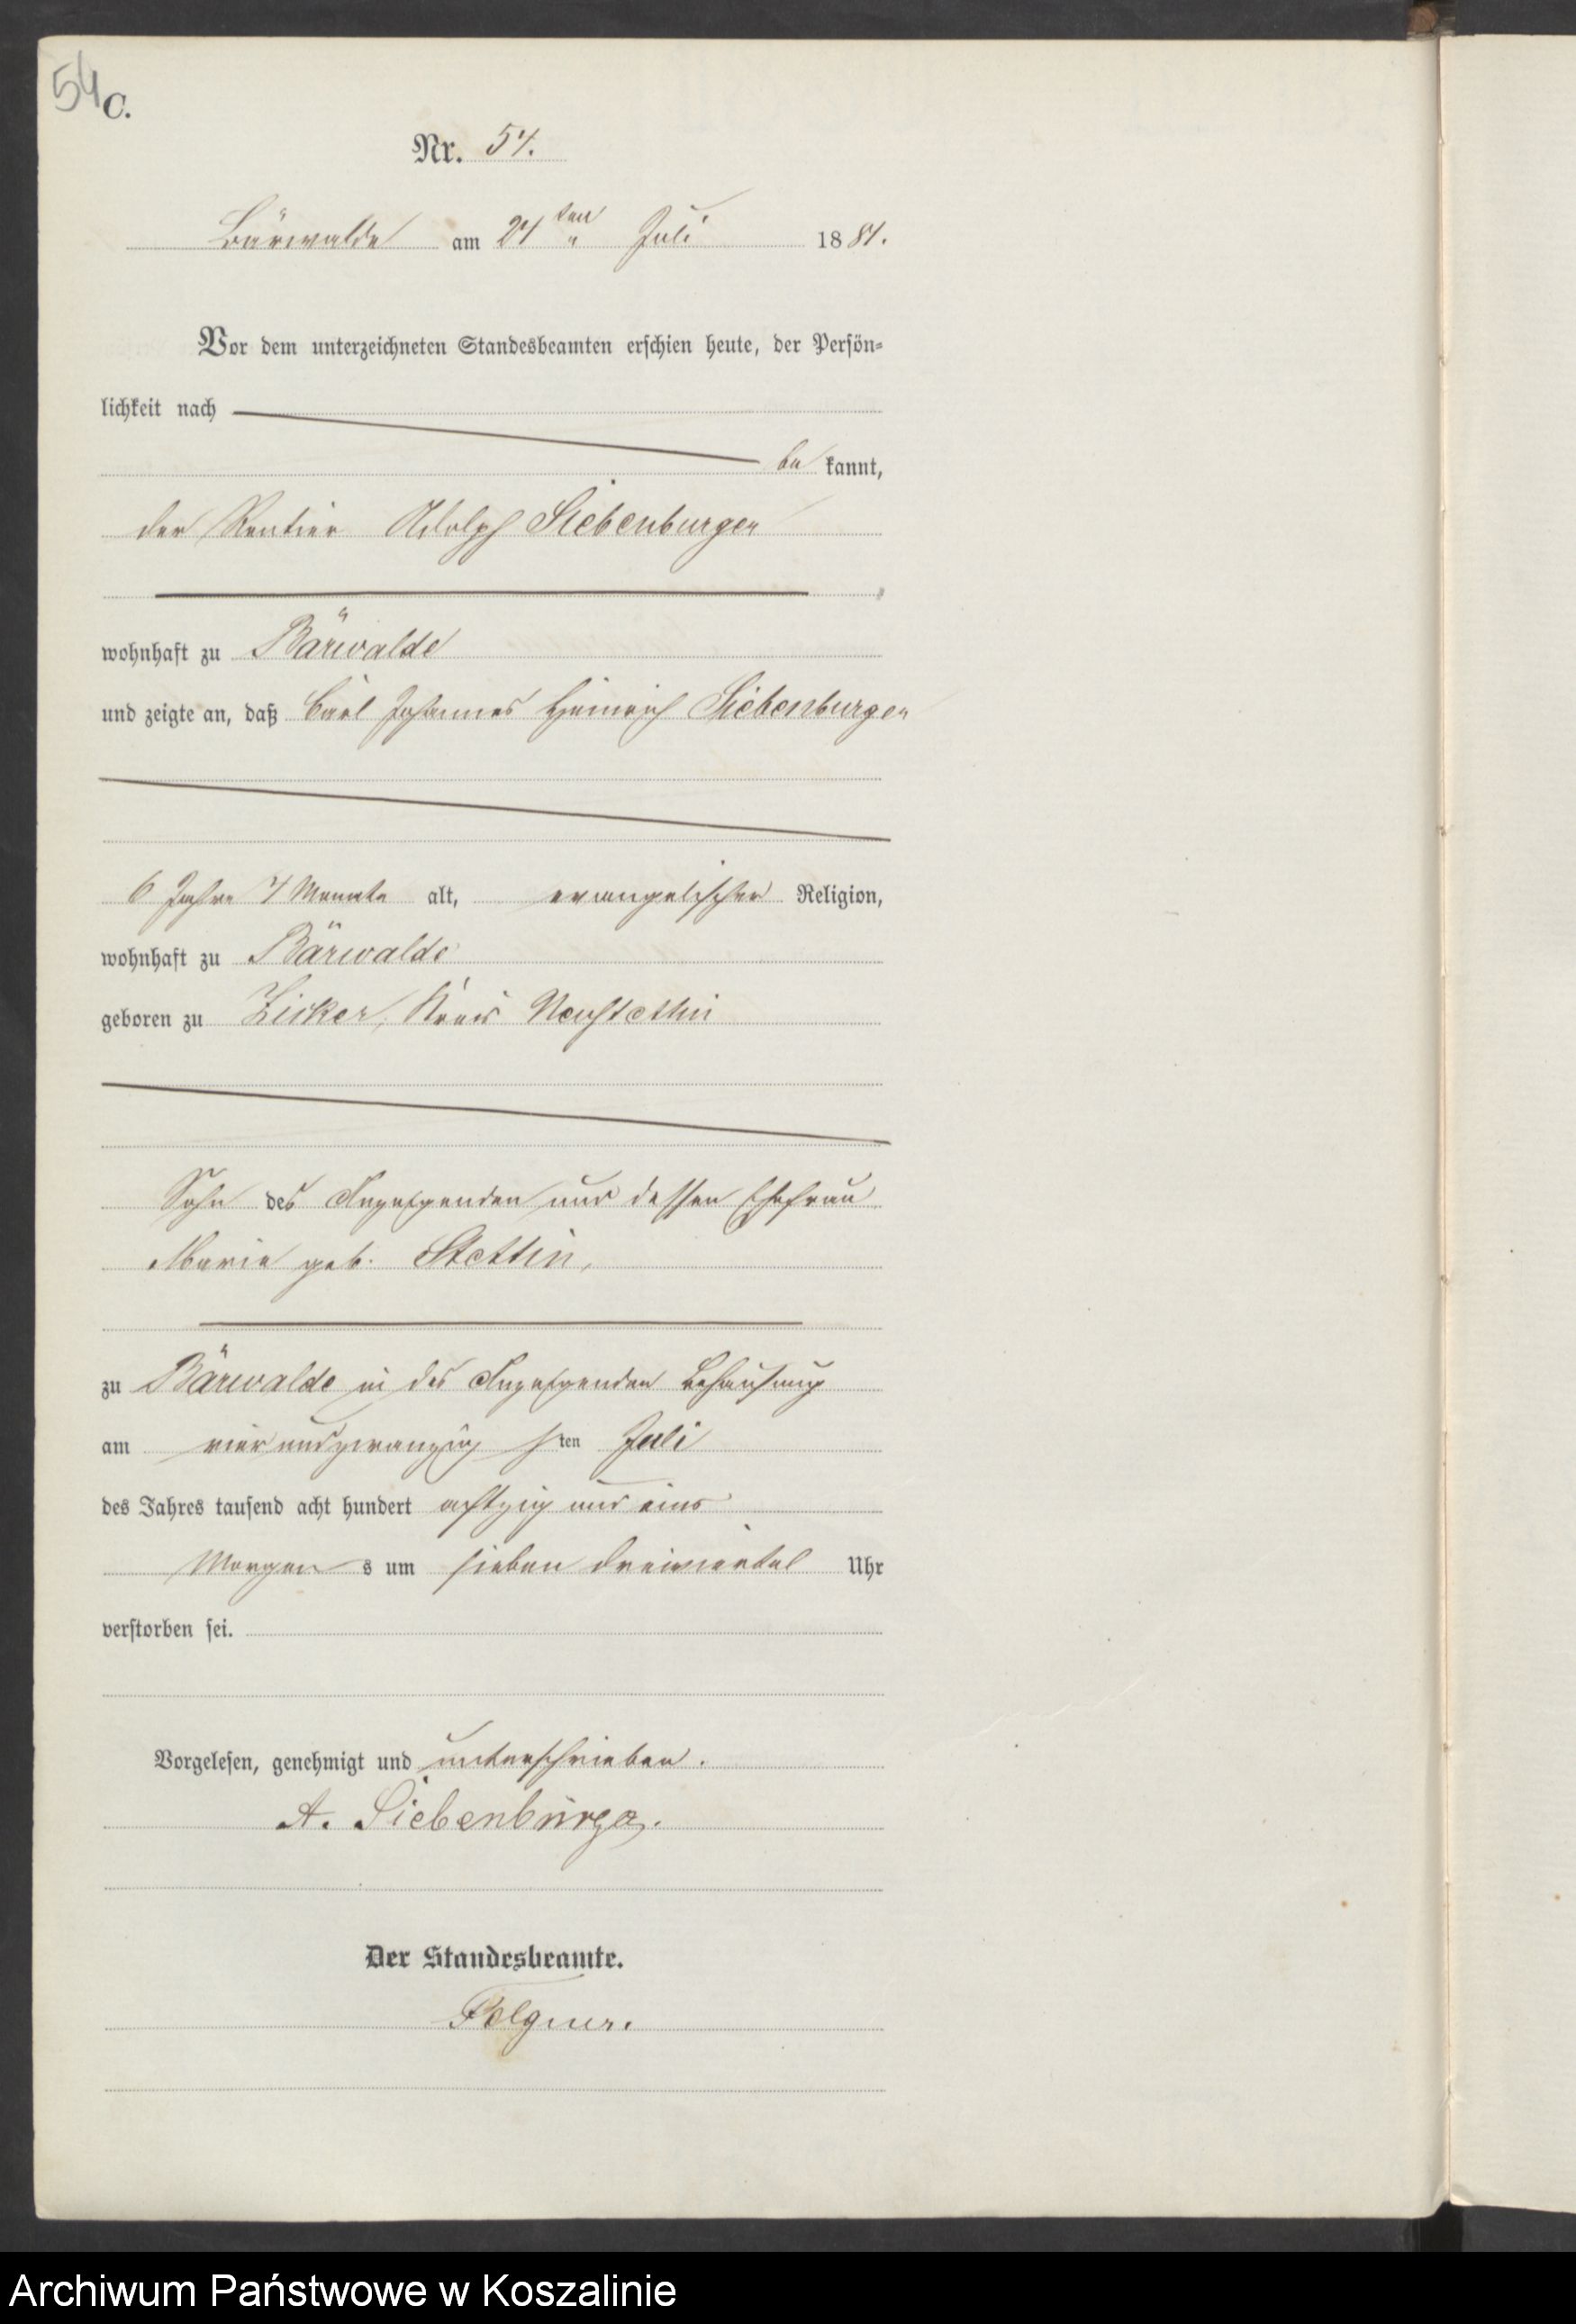 54
C.
Nr. 54.
Bärwalde am 24ten Juli 1881.
Vor dem unterzeichneten Standesbeamten erschien heute, der Persön-
lichkeit nach
be kannt,
der Rentier Adolph Siebenburger
wohnhaft zu Bärwalde
und zeigte an, daß Carl Johannes Heinrich Siebenburger
6 Jahre 7 Monate alt, evangelischer Religion,
wohnhaft zu Bärwalde
geboren zu Zicker, Kreis Neustettin
Sohn des Anzeigenden und dessen Ehefrau
Marie geb. Stettin,
zu Bärwalde in des Anzeigenden Behausung
am vier und zwanzig sten Juli
des Jahres tausend acht hundert achtzig und eins
Morgen s um sieben dreiviertel Uhr
verstorben sei.
Vorgelesen, genehmigt und unterschrieben.
A. Siebenbürger.
Der Standesbeamte.
Felgner.
Archiwum Państwowe w Koszalinie